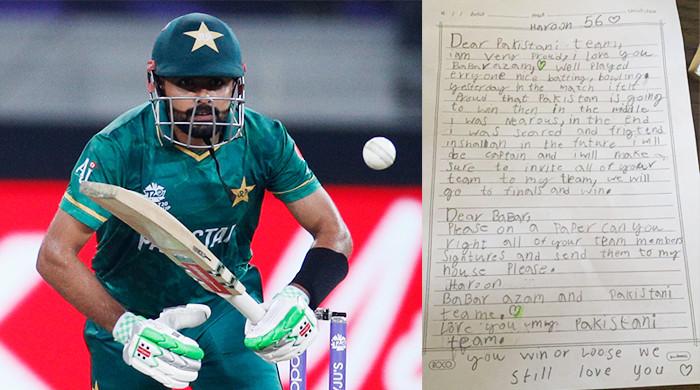 PAKISTAN
Haroon 56 ♡
Dear Pakistani team,
i am very proud, I love you
BaBar azam,♡ well played
erryone nice batting, bowling,
yesterday in the match i felt
Proud that Pakistan is going
to win then in the middle
I was nearous, in the end
i was scared and frigtend
inshallah in the future i will
be captain and i will make
sure to invite all of your
team to my team, we will
go to finals and win.
Dear BaBar,
Please on a paper can you
right all of your team members
signtures and send them to my
house please.
Haroon
BaBar azam and Pakistani
teame.♡
Love you my Pakistani
team.
you win or loose we
still love you ♡